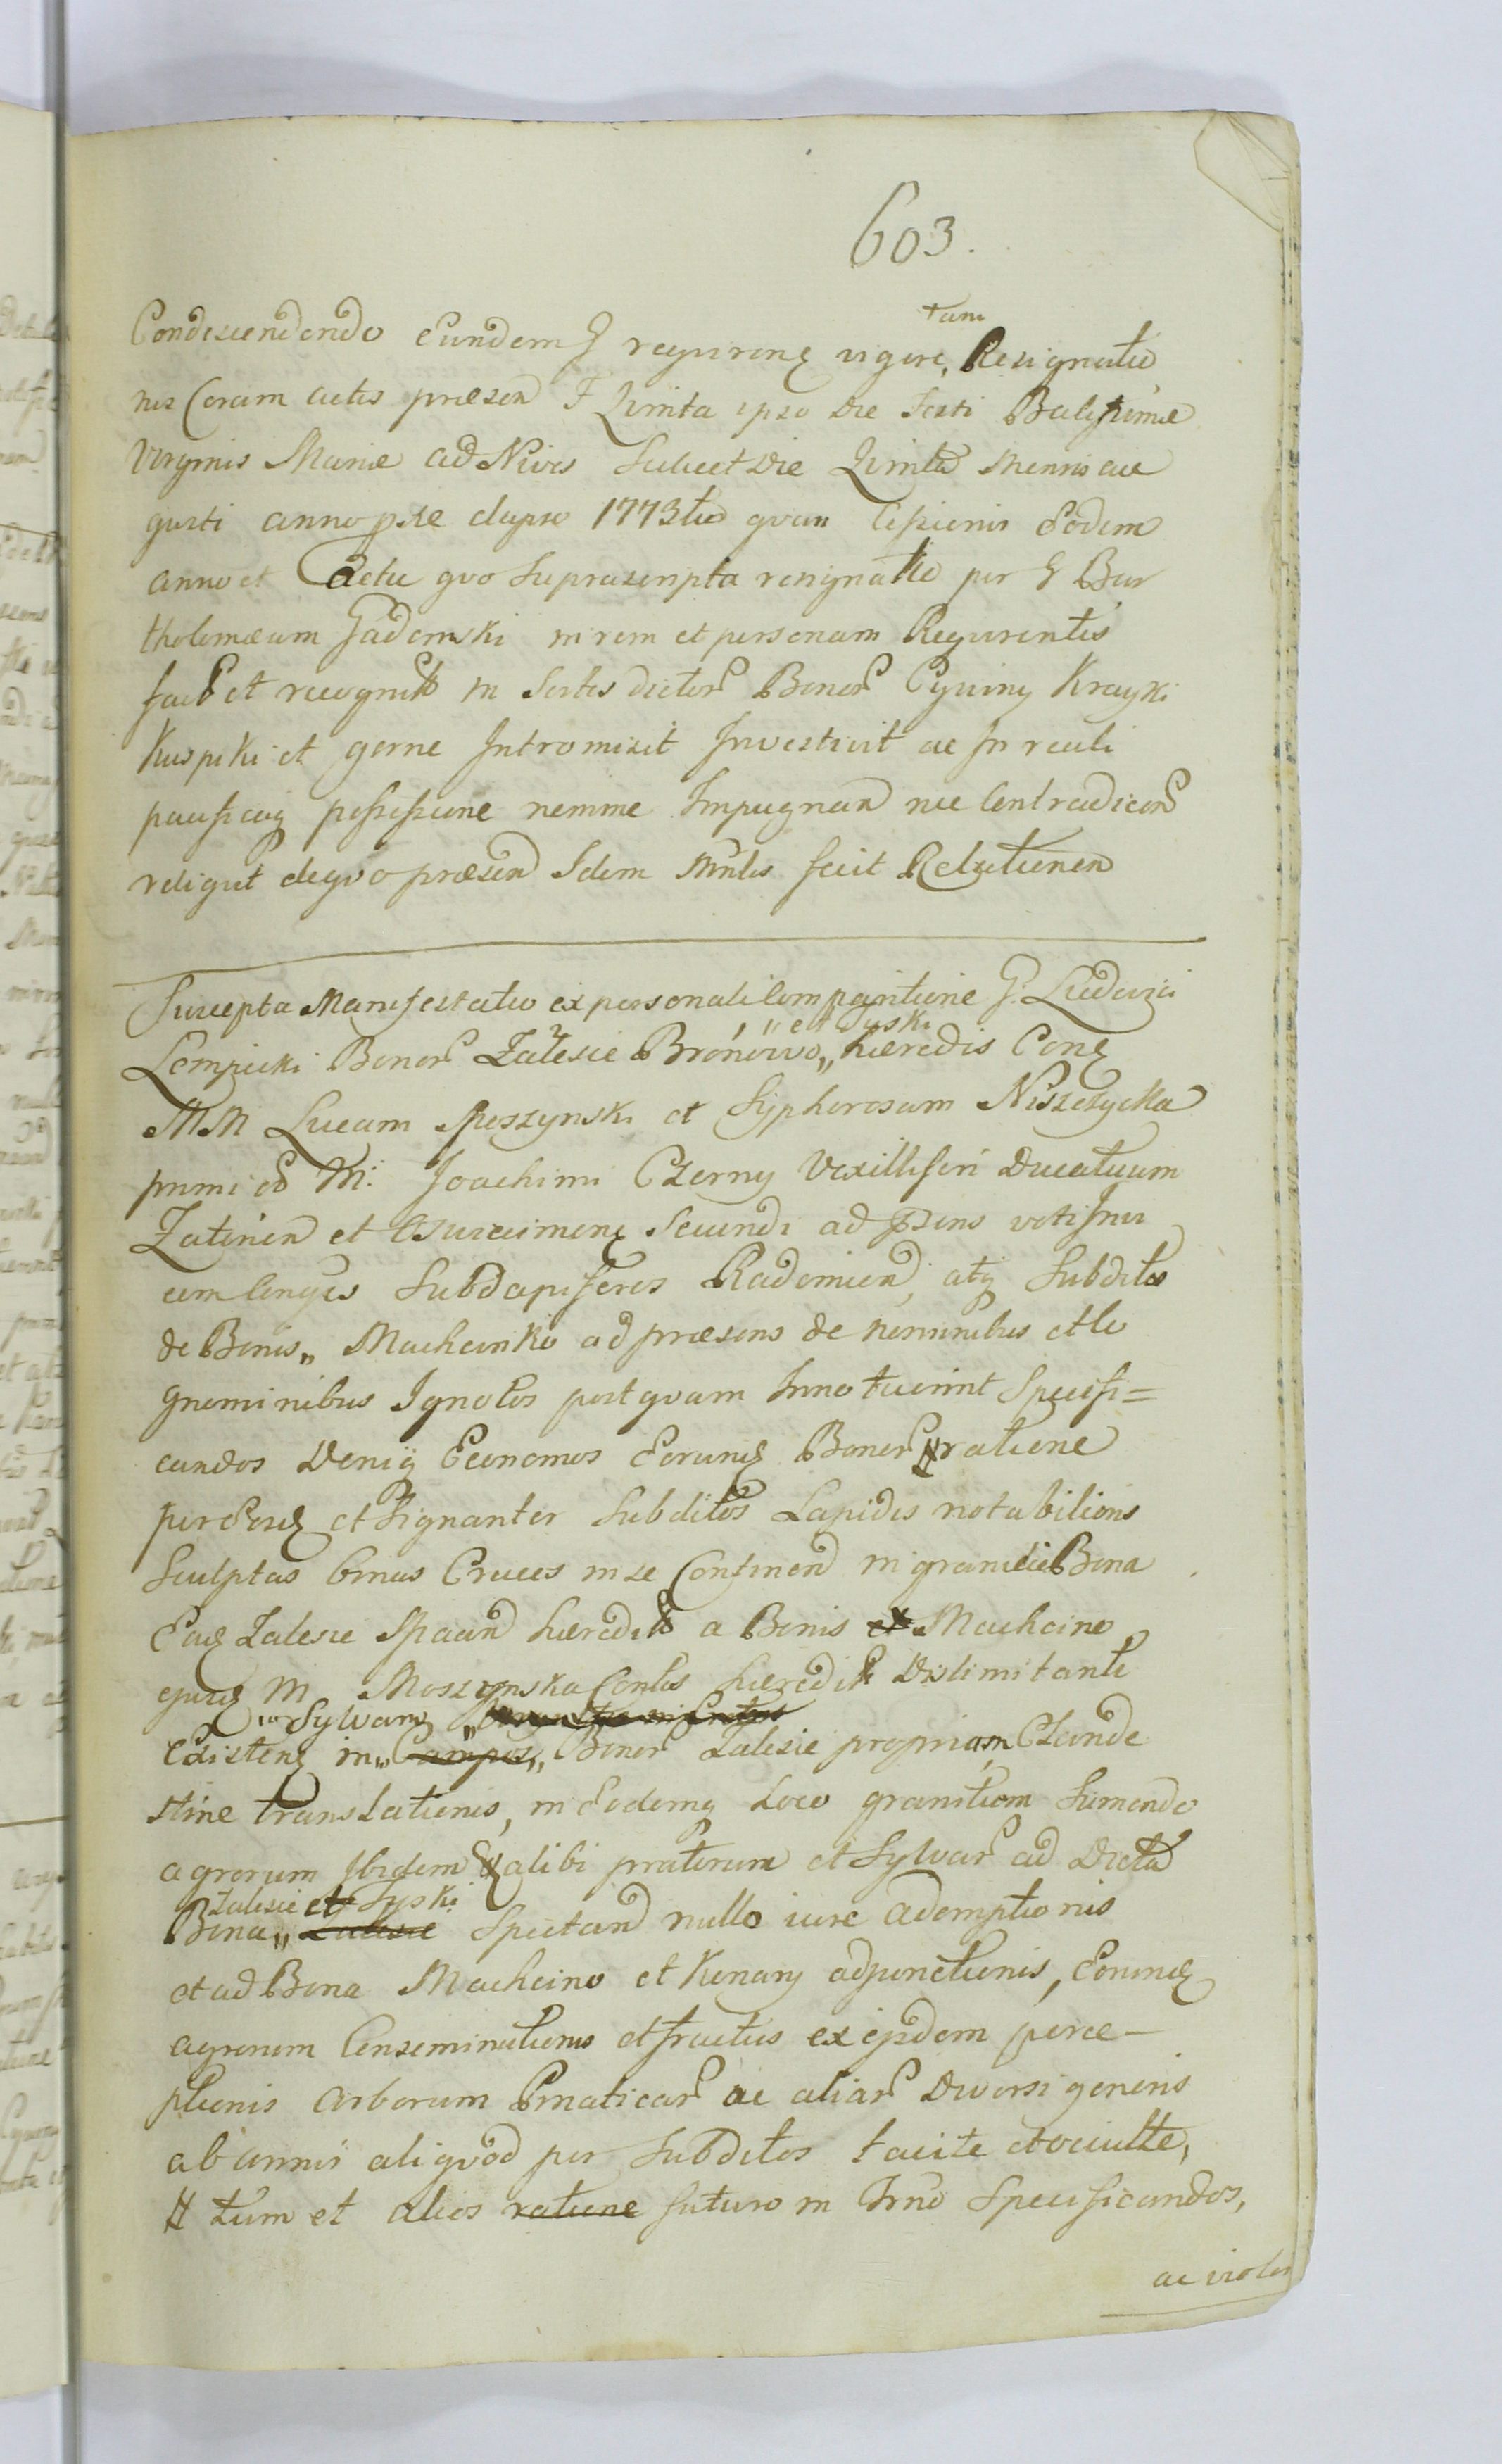 603.
Condescendendo eundemq requirenę vigore, tam Resignatio
nis Coram actis præsen F Quinta ipso die festi Beatissimæ
Virginis Mariæ ad Nives scilicet die Quinta Mensis au
gusti anno p̄te elapso 1773tio Eodem
anno et actu quo suprascripta resignatio per G Bar
tholomæum Gadomski in rem et personam Requirentis
fact et recognit in sortes dictor Bonor Cywiny Krayki
Kuspiki et gorne Intromisit Investivit ac in reali
pacificaq possessione nemine Impugnan nec Contradicen
reliquit de quo præsen Idem Mnlis fecit Relationem
Suscepta Manifestatio ex personali Comparitione G. Ludovici
Lempicki Bonor Zalesie Bronowo „ et Syski hæredis Conę
MM Lucam Meszynski et Sypherosam Niszczycka
primi eo M. Joachimi Czerny Vexilliferi Ducatuum
Zatorien et secundi ad p̄sens voti
conseuges Subdapiferos Radomien, atq subditos
de Bonis „ Machcinko ad præsens de nominibus et co
gnominibus Ignotos postquam Innotuerint Specifi=
candos Deniq Economos eorumę Bonor # ratione
per et signanter subditos Lapidis notabilioris
Sculptas binas Cruces in se Continen in granicie Bona
Eaę Zalesie Spaan hæredit a Bonis ex Machcino
ejusę M. Moszynska Contis hæredit Dislimitante
Sylvam
Existenę in „ Campos „ Bonor Zalesie propriam, Clande
stine translationis, in Eodemq Loco granitiem sumendo
agrorum ibidem & alibi pratorum et Sylvar ad Dicta
Zalesie et Syski
Bona „ Zalesie Spectan nullo iure ademptionis
et ad Bona Machcino et Konary adjunctionis, Eorumę
agrorum Conseminationis et fructus ex ejsdem perce-
ptionis Arborum ac aliar Diversi generis
ab annis aliquod per Subditos tacite et occulte,
# tum et alios ratione futuro in Trno Specificandos,
ac violen